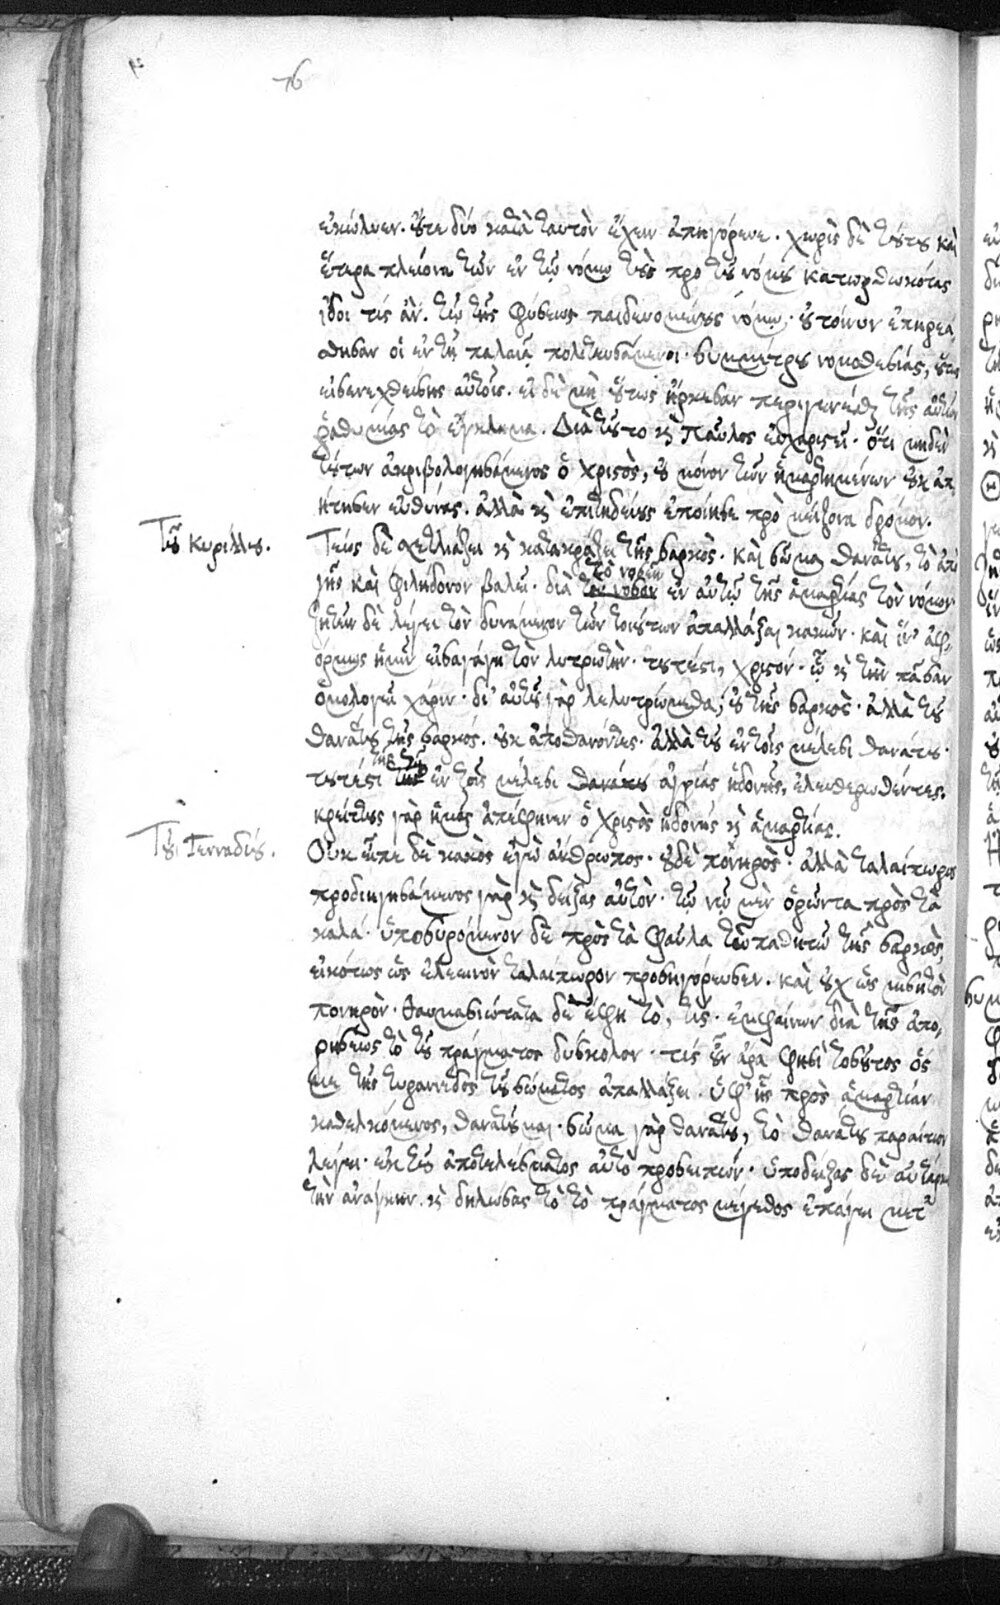 76
ἐκώλυεν. οὔτε δύο κατὰ ταυτὸν ἔχειν ἀπηγόρευε. χωρὶς δὲ τούτου καὶ
ἕτερα πλείονα τῶν ἐν τῷ νόμῳ τοὺς πρὸ τοῦ νόμου κατωρθωκότας
ἴδοι τίς ἂν. τῷ τῆς φύσεως παιδευομένους νόμῳ. οὐ τοίνυν ἐπηρεά
σθησαν οἱ ἐν τῇ παλαιᾷ πολιτευσάμενοι. συμμέτρου νομοθεσίας, οὕτως
εἰσενεχθείσης αὐτοῖς. εἰ δὲ μὴ οὕτως ἤρκεσαν περιγενέσθαι τῆς αὐτῶν
ῥαθυμίας τὸ ἔγκλημα. Διὰ τοῦτο καὶ Παῦλος εὐχαριστεῖ. ὅτι μηδὲν
τούτων ἀκριβολογησάμενος ὁ Χριστὸς, οὐ μόνον τῶν ἡμαρτημένων οὐκ ἀπ
ῄτησεν εὐθύνας. ἀλλὰ καὶ ἐπιτηδείους ἐποίησε πρὸ μείζονα δρόμον.
Τοῦ Κυρίλλου.
Τέως δὲ σχετλιάζει καὶ κατακράζει τῆς σαρκὸς. καὶ σῶμα θανάτου, τὸ ἀπὸ
γῆς καὶ φιλήδονον καλεῖ. διὰ τὸ νοσεῖν ἐν αὐτῷ τῆς ἁμαρτίας τὸν νόμον
ζητεῖν δὲ λέγει τὸν δυνάμενον τῶν τοιούτων ἀπαλλάξαι κακῶν. καὶ
ἡμῖν εἰσαγάγῃ τὸν λυτρωτὴν. τουτέστι, Χριστόν. ᾧ καὶ τὴν πᾶσαν
ὁμολογεῖ χάριν. δι' αὐτοῦ γὰρ λελυτρώμεθα, οὐ τῆς σαρκὸς. ἀλλὰ τοῦ
θανάτου τῆς σαρκός. οὐκ ἀποθανόντες. ἀλλὰ τοῦ ἐν τοῖς μέλεσι θανάτου.
τουτέστι τῆς ἐν τοῖς μέλεσι θανάτου ἀγρίας ἡδονῆς, ἐλευθερωθέντες.
κρείττους γὰρ ἡμᾶς ἀπέφηνεν ὁ Χριστὸς ἡδονῆς καὶ ἁμαρτίας.
Τοῦ Γενναδίου.
Οὐκ εἶπε δὲ κακὸς ἐγὼ ἄνθρωπος. οὐδὲ πονηρὸς. ἀλλὰ ταλαίπωρος
προδιηγησάμενος γὰρ καὶ δείξας αὐτὸν. τῷ νῷ μὲν ὁρῶντα πρὸς τὰ
καλά. ὑποσυρόμενον δὲ πρὸς τὰ φαῦλα τῷ παθητῷ τῆς σαρκὸς,
εἰκότως ὡς ἐλεεινὸν ταλαίπωρον προσηγόρευσεν. καὶ οὐχ ὡς μισητὸν
πονηρὸν. θαυμασιώτατα δὲ ἔφη τὸ, τίς. ἐμφαίνων διὰ τῆς ἀπο,
ρήσεως τὸ τοῦ πράγματος δύσκολον. τίς οὖν ἄρα φησὶ τοσοῦτος ὅς
με τῆς τυραννίδος τοῦ σώματος ἀπαλλάξει. ὑφ' ἧς πρὸς ἁμαρτίαν
καθελκόμενος, θανατοῦμαι. σῶμα γὰρ θανάτου, τὸ θανάτου παραίτιον
λέγει. ἐκ τοῦ ἀποτελέσματος αὐτὸ προσειπών. ὑποδείξας δὲ
τὴν ἀνάγκην. καὶ δηλώσας τὸ τὸ πράγματος μέγεθος ἐπάγει μετ